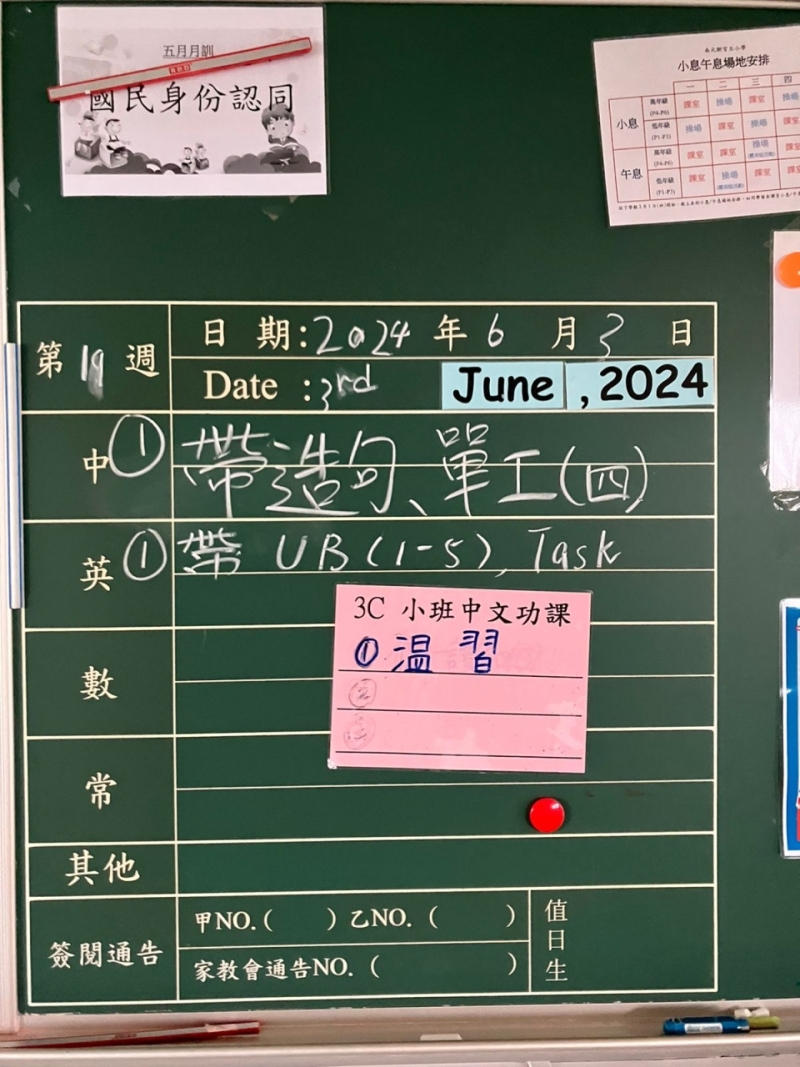 五月月訓
國民身份認同
小息午息場地安排
一 二 三 四
小息
高年級 (P4-P6) 課室 操場 課室 操場
低年級 (P1-P3) 操場 課室 操場 課室
午息
高年級 (P4-P6) 課室 課室 操場 課室
低年級 (P1-P3) 課室 操場 課室 課室
第19週
日期:2024年6月3日
Date :3rd June ,2024
中 ① 帶造句、單工(四)
英 ① 帶 UB(1-5), Task
3C 小班中文功課
①溫習
②
③
數
常
其他
簽閱通告
甲NO.( )乙NO.( )
家教會通告NO.( )
值日生